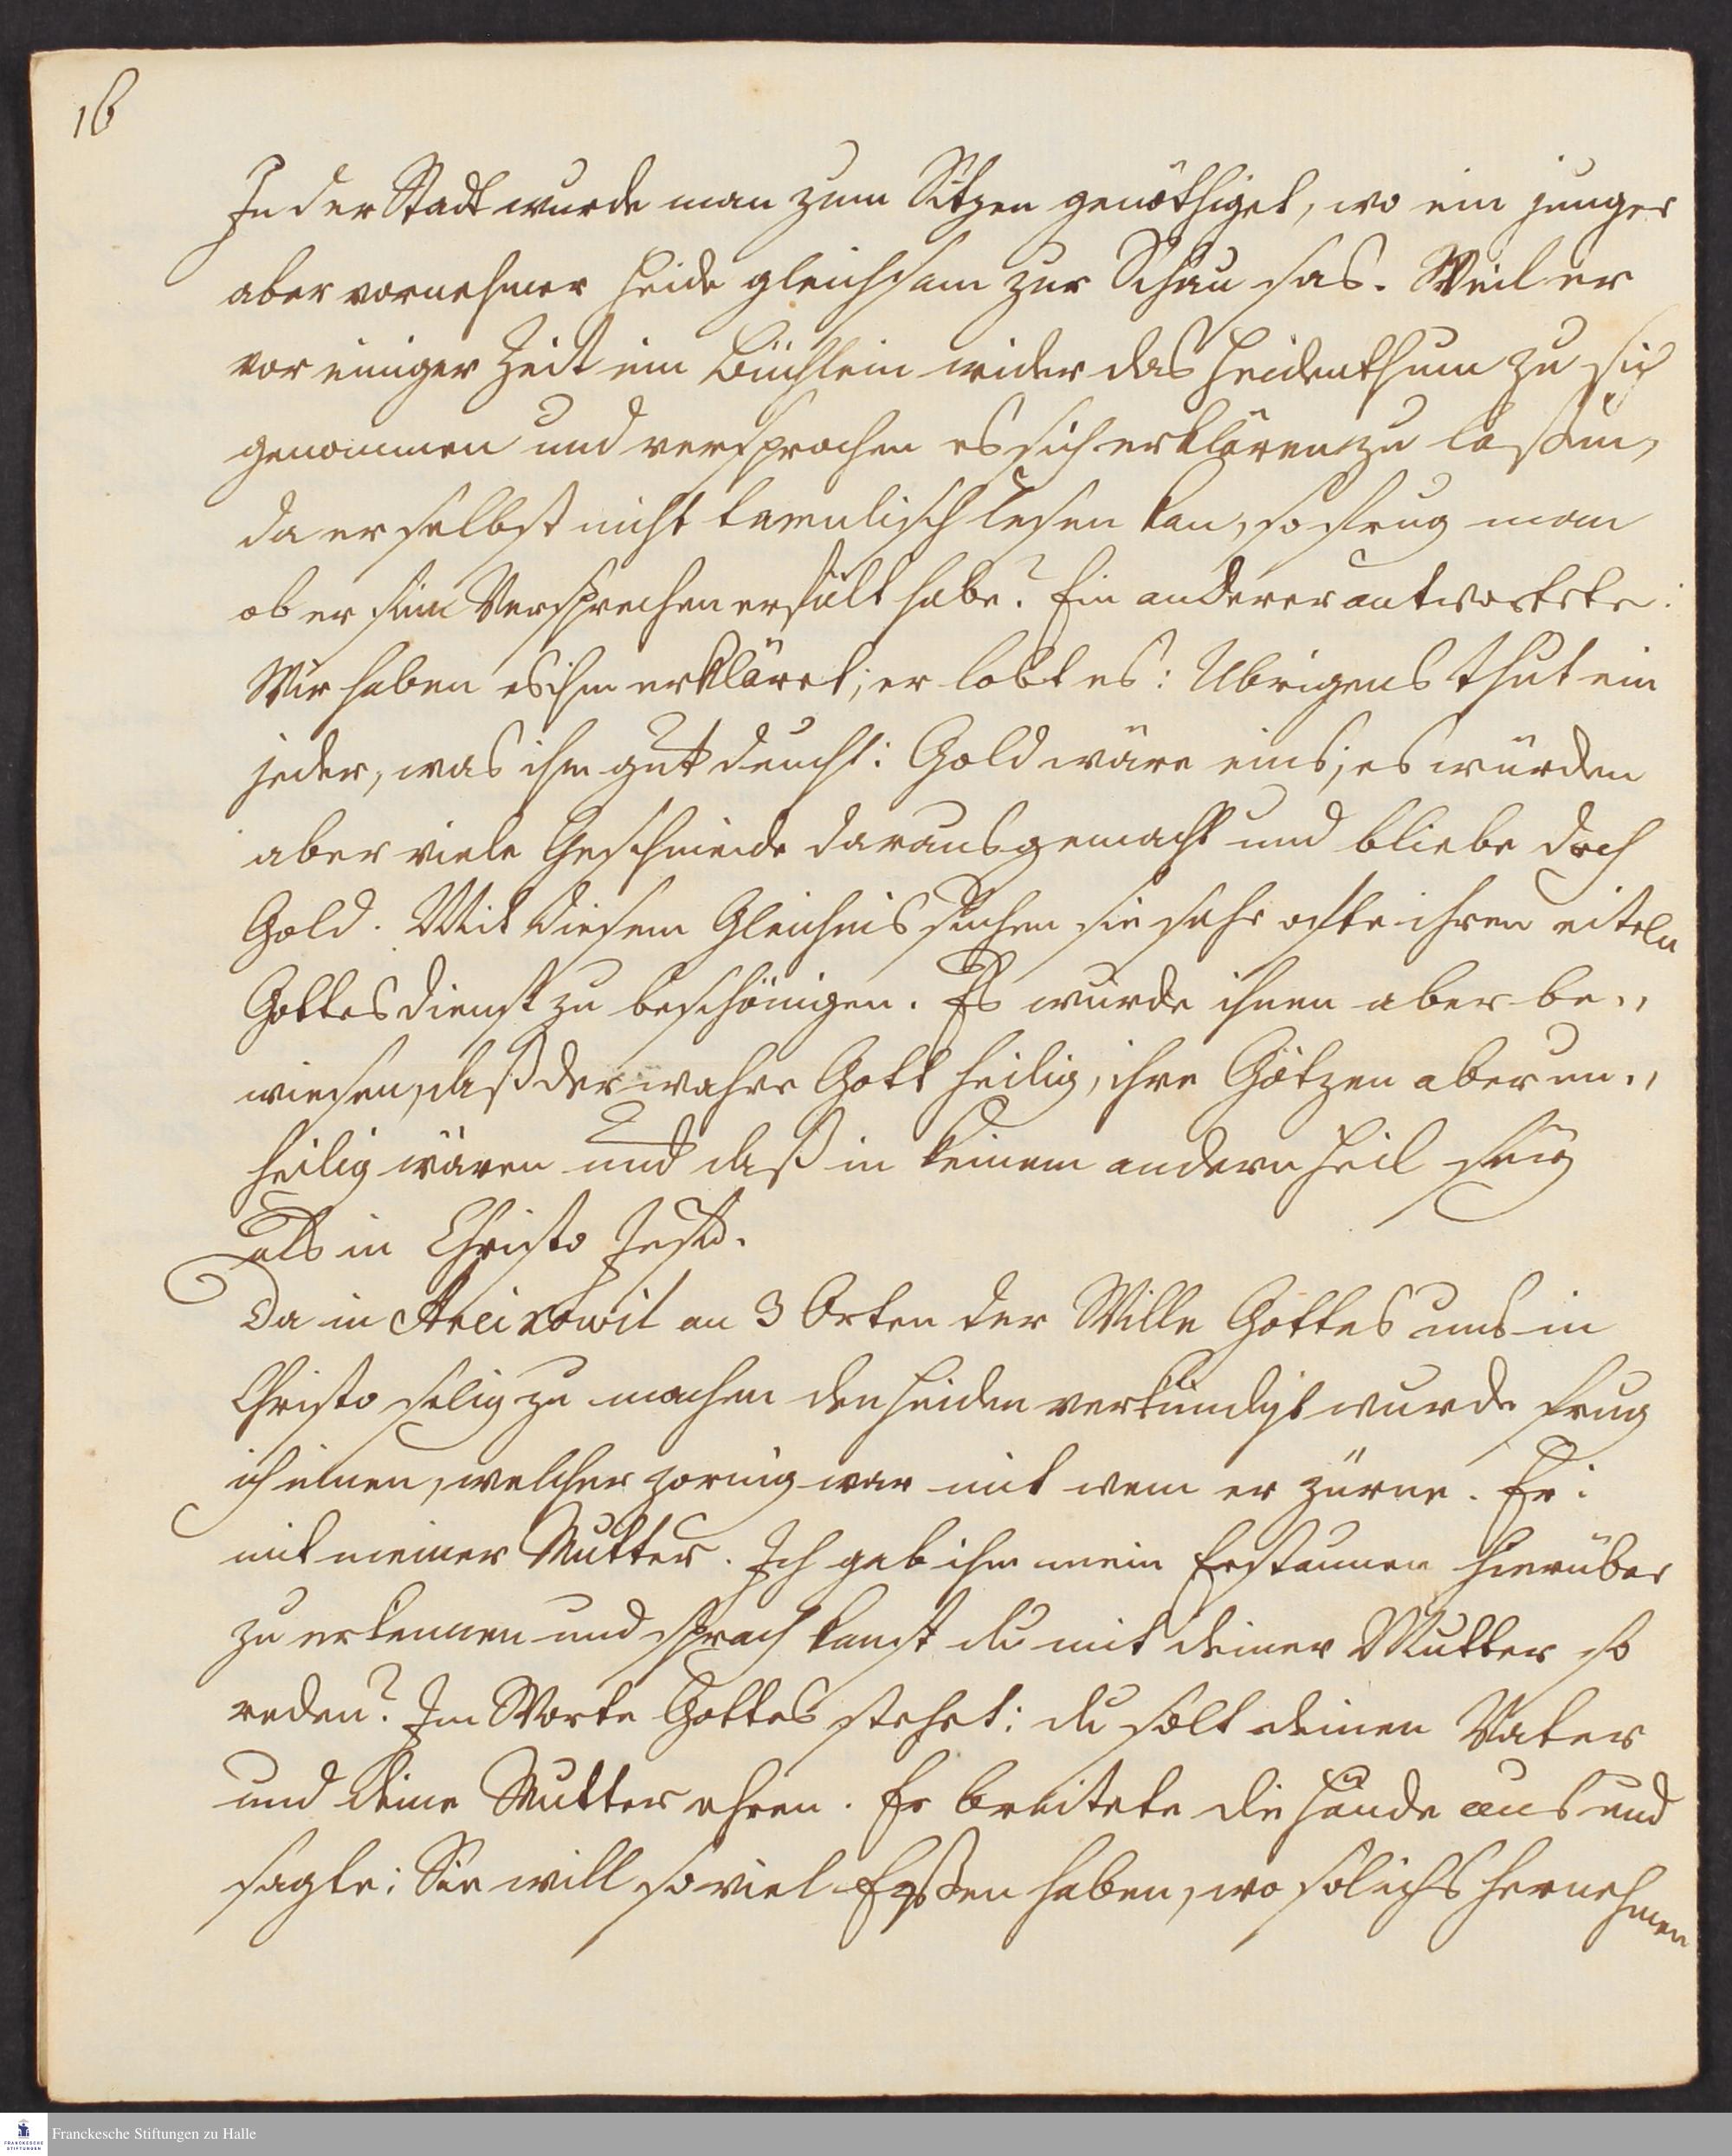 16
In der Stadt wurde man zum Sitzen genöthiget, wo ein junger
aber vornehmer Heide gleichsam zur Schau sas. Weil er
vor einiger Zeit ein Büchlein wider das Heidenthum zu sich
genommen und versprochen es sich erklären zu laßen,
da er selbst nicht tamulisch lesen kan, so frug man
ob er sein Versprechen erfült habe? Ein anderer antwortete:
Wir haben es ihm erkläret; er lobt es: Übrigens thut ein
jeder, was ihm gut deucht: Gold wäre eins; es würden
aber viele Geschmeide daraus gemacht und bliebe doch
Gold. Mit diesem Gleichnis suchen sie sehr ofte ihren eiteln
Gottesdienst zu beschönigen. Es wurde ihnen aber be„
wiesen, daß der wahre Gott heilig, ihre Götzen aber un„
heilig wären und daß in keinem andern Heil seÿ
als in Christo Jesu.
Da in an 3 Orten der Wille Gottes uns in
Christo selig zu machen den Heiden verkündigt wurde frug
ich einen, welcher zornig war mit wem er zürne. Er:
mit meiner Mutter. Ich gab ihm mein Erstaunen hierüber
zu erkennen und sprach kanst du mit deiner Mutter so
reden? Im Worte Gottes stehet: du solt deinen Vater
und deine Mutter ehren. Er breitete die Hände aus und
sagte: Sie will so viel Eßen haben, wo sol ichs hernehmen
Franckesche Stiftungen zu Halle
FRANCKESCHE
STIFTUNGEN